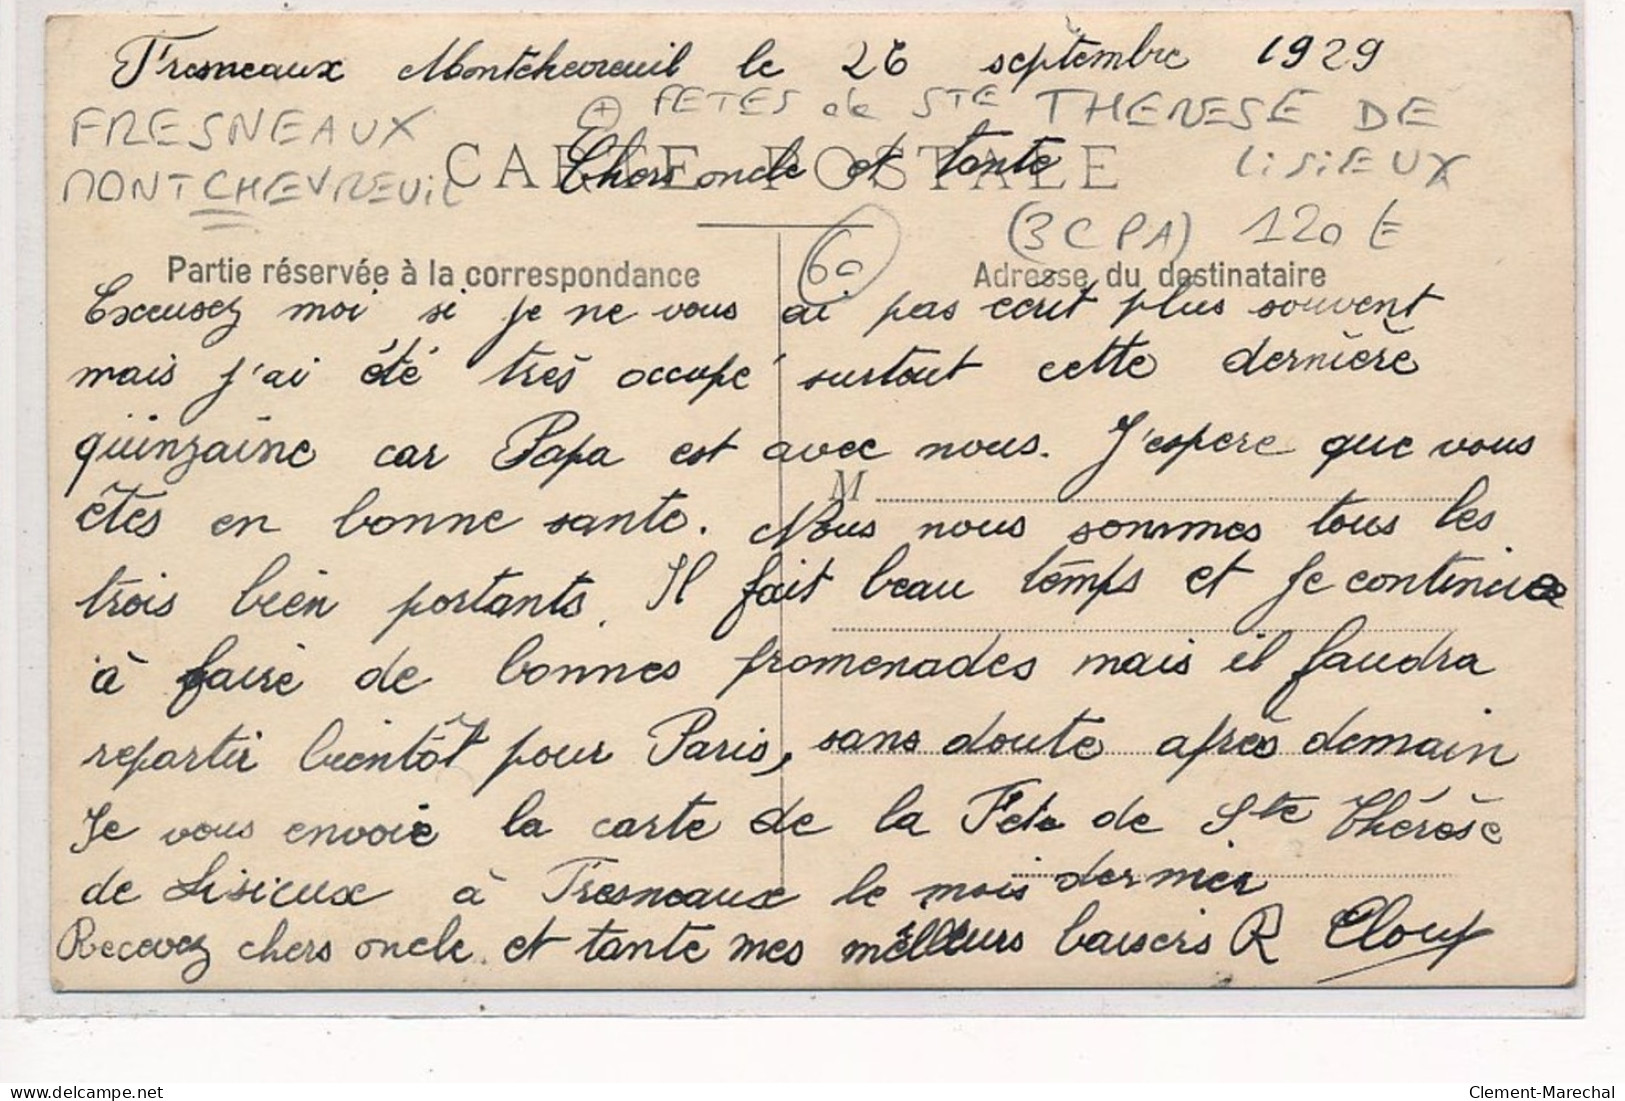 Fresneaux Montchevreuil le 26 septembre 1929
FRESNEAUX + FETES de STE THERESE DE
MONTCHEVREUIL LISIEUX
CARTE POSTALE
Chers oncle et tante
(3 CPA) 120 E
60
Partie réservée à la correspondance Adresse du destinataire
Excusez moi si je ne vous ai pas écrit plus souvent
mais j'ai été très occupé surtout cette dernière
quinzaine car Papa est avec nous. J'espere que vous
M
êtes en bonne sante. Nous nous sommes tous les
trois bien portants. Il fait beau temps et je continue
à faire de bonnes promenades mais il faudra
repartir bientôt pour Paris, sans doute après demain
Je vous envoie la carte de la Fete de Ste Thérèse
de Lisieux à Fresneaux le mois dernier
Recevez chers oncle et tante mes meilleurs baisers R
delcampe.net
Clement-Marechal